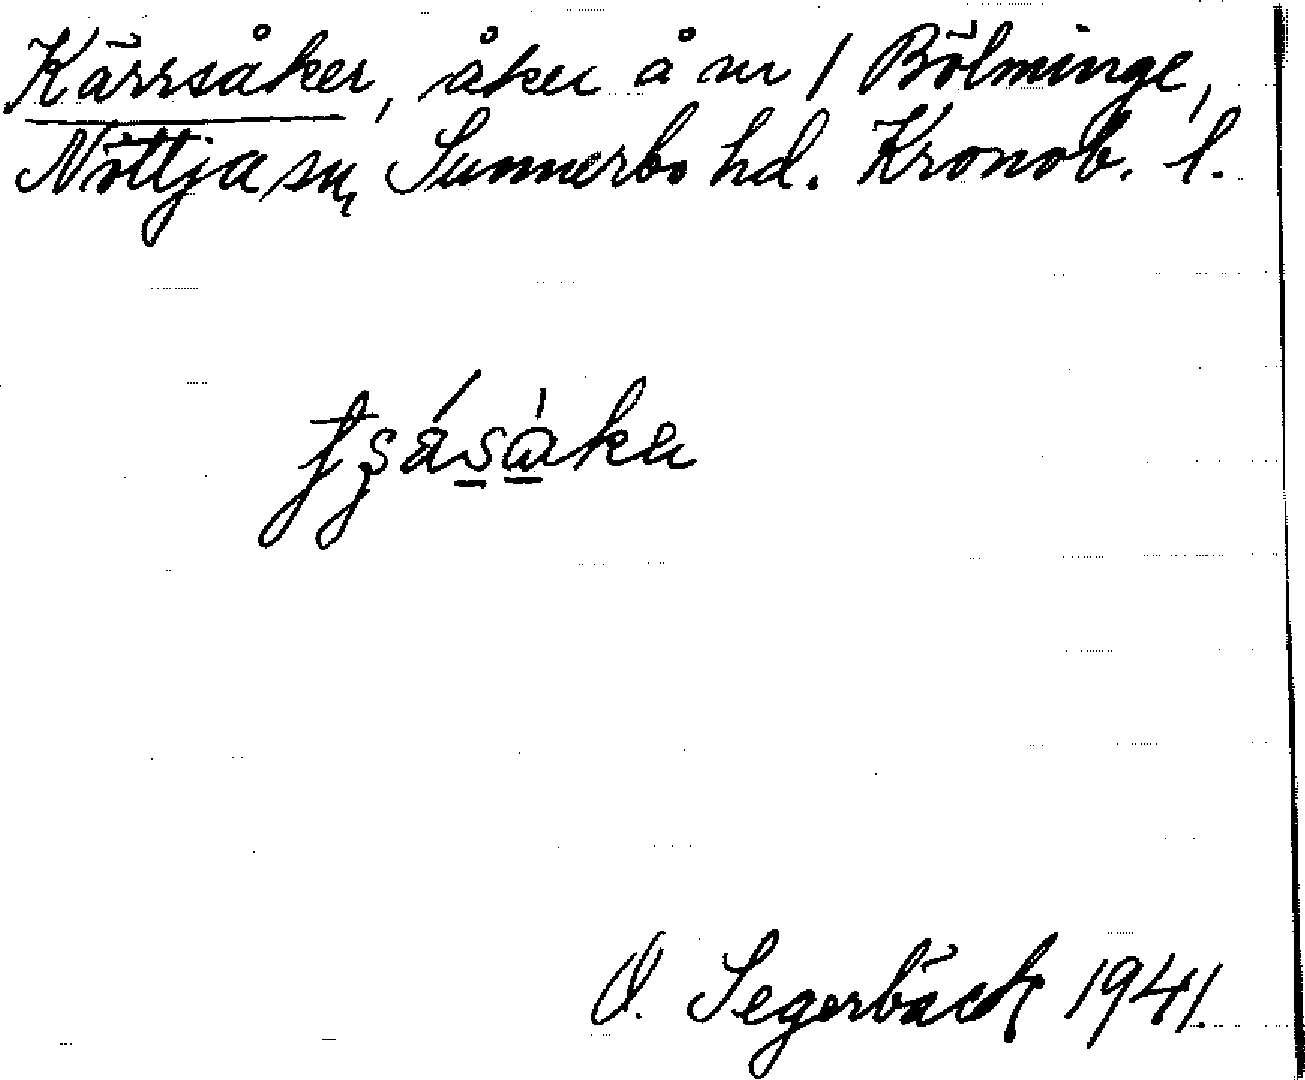 Kärrsåker, åker å nr 1 Bölminge,
Nöttja sn, Sunnerbo hd. Kronob. l.
O. Segerbäck 1941.